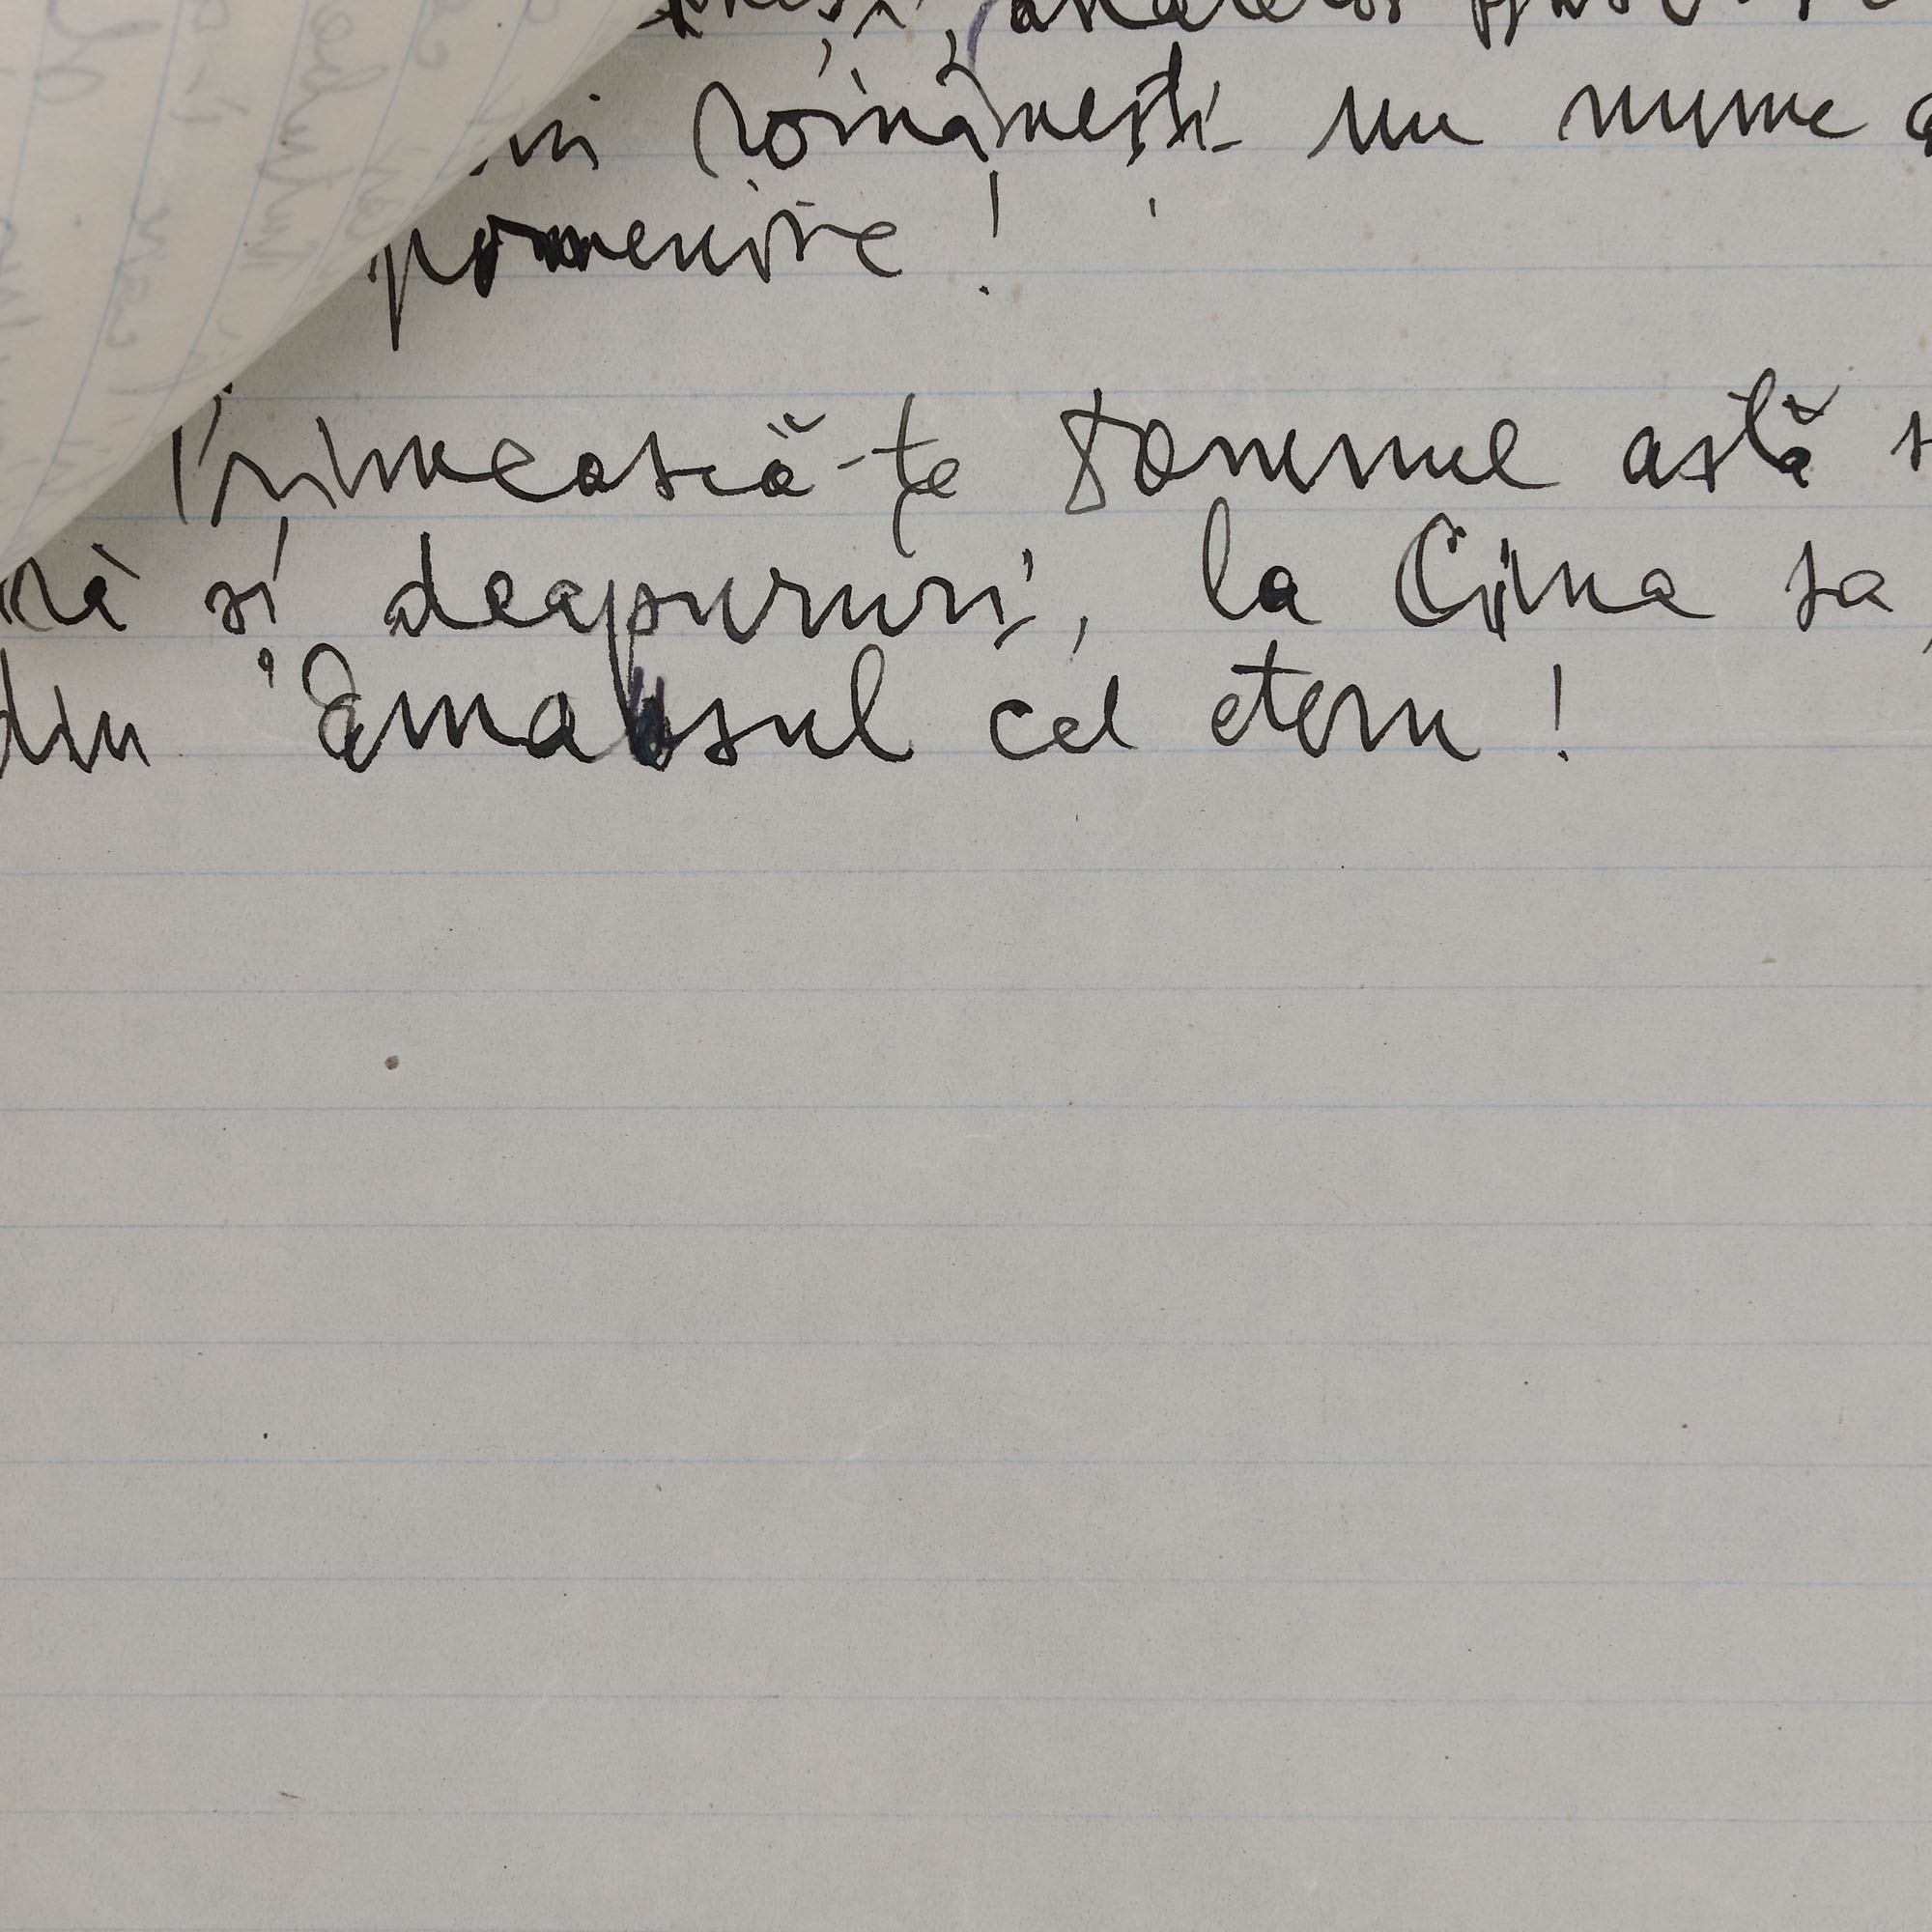 românești un nume
pomenire!
Primească-te Domnul astă
și deapururi, la Cina sa,
din Emausul cel etern!